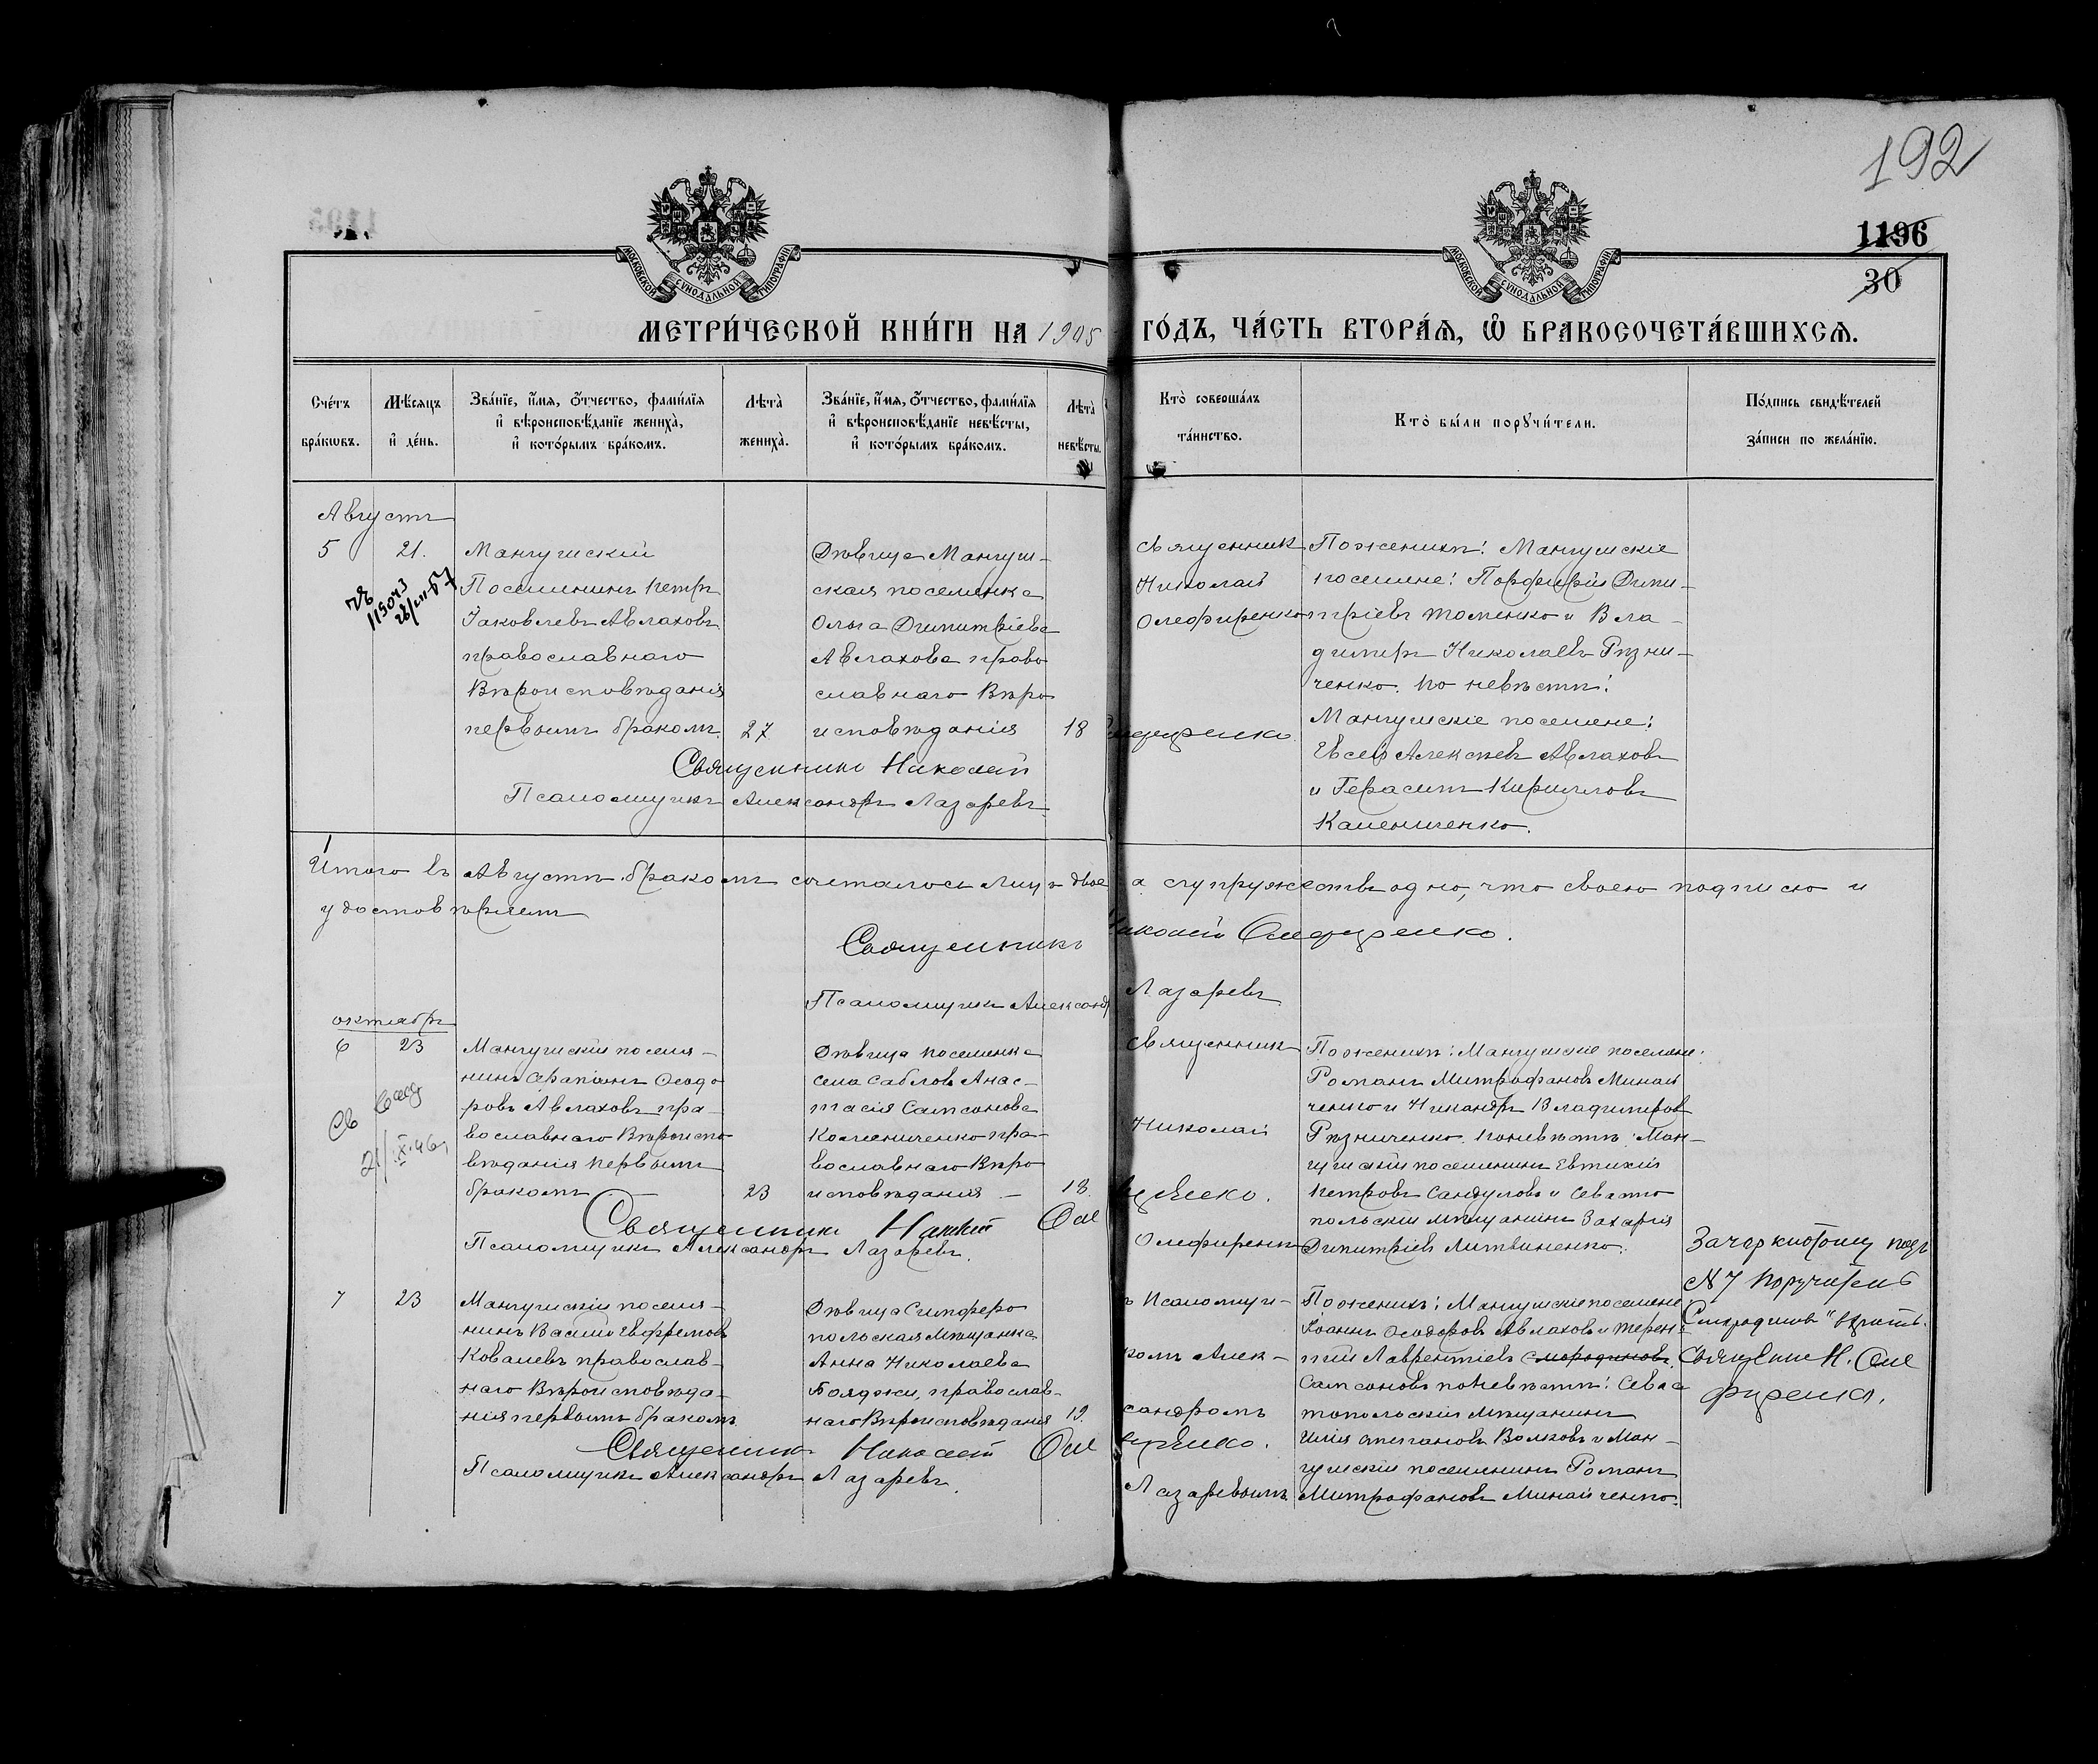 192
1196
30
МОСКОВСКОЙ СѴНОДАЛЬНОЙ ТИПОГРАФІИ
МОСКОВСКОЙ СѴНОДАЛЬНОЙ ТИПОГРАФІИ
МЕТРИ́ЧЕСКОЙ КНИ́ГИ НА 1905 ГО́ДЪ, ЧА́СТЬ ВТОРА́Ѧ, Ѡ҆ БРАКОСОЧЕТА́ВШИХСѦ.
Сче́тъ
бра́кѡвъ.
Мѣ́сяцъ
и҆ де́нь.
Зва́нїе, и҆́мя, ѻ҆́тчество, фами́лїя
и҆ вѣроисповѣ́данїе жениха̀,
и҆ кото́рымъ бра́комъ.
Лѣта̀
жениха̀.
Зва́нїе, и҆́мя, ѻ҆́тчество, фами́лїя
и҆ вѣроисповѣ́данїе невѣ́сты,
и҆ кото́рымъ бра́комъ.
Лѣта̀
невѣ́сты.
Кто̀ соверша́лъ
та́инство.
Кто̀ бы́ли порꙋчи́тели.
По́дпись свидѣ́телей
за́писи по жела́нїю.
Августъ
5
21.
Мангушскій
Поселянинъ Петръ
Іаковлевъ Авлаховъ
православнаго
Вѣроисповѣданія
первымъ бракомъ.
27
Дѣвица Мангуш-
ская поселянка
Ольга Димитріева
Авлахова право
славнаго Вѣро
исповѣданія
18
Священникъ
Николай
Олефиренко
По женихѣ: Мангушскіе
поселяне: Порфирій Дими-
тріевъ Томенко и Вла-
димиръ Николаевъ Рѣзни-
ченко. По невѣстѣ:
Мангушскіе поселяне:
Евсей Алексѣевъ Авлаховъ
и Герасимъ Кирилловъ
Калениченко.
Священникъ Николай Олефиренко.
Псаломщикъ Александръ Лазаревъ.
Итого въ Августѣ бракомъ сочеталось лицъ двое а супружествъ одно, что своею подписью и
удостовѣряемъ
Священникъ Николай Олефиренко.
Псаломщикъ Александръ Лазаревъ
октябрь
6
23
Мангушскій поселя-
нинъ Серапіонъ Ѳеодо
ровъ Авлаховъ пра-
вославнаго Вѣроиспо
вѣданія первымъ
бракомъ
23
Дѣвица поселянка
села Сабловъ Анас-
тасія Сампсонова
Калениченко пра-
вославнаго Вѣро
исповѣданія
18.
Священникъ
Николай
Олефиренк
По женихѣ: Мангушскіе поселяне:
Романъ Митрофановъ Минай
ченко и Никандръ Владимировъ
Рѣзниченко. По невѣстѣ: Ман-
гушскій поселянинъ Евтихій
Петровъ Сандуловъ и Севасто
польскій мѣщанинъ Захарія
Димитріевъ Литвиненко.
Священникъ Николай Олефиренко.
Псаломщикъ Александръ Лазаревъ.
7
23
Мангушскій поселя-
нинъ Василій Евфремовъ
Ковалевъ православ-
наго Вѣроисповѣда-
нія первымъ бракомъ
Дѣвица Симферо
польская мѣщанка
Анна Николаева
Бояджи, православ-
наго Вѣроисповѣданія
19.
ъ Псаломщи-
комъ Алек-
сандромъ
Лазаревымъ
По женихѣ: Мангушскіе поселяне
Іоаннъ Ѳеодоровъ Авлаховъ и Терен-
тій Лаврентіевъ Смородиновъ
Сампсоновъ по невѣстѣ: Севас
топольскій мѣщанинъ
Илія Степановъ Волковъ и Ман-
гушскій поселянинъ Романъ
Митрофановъ Минайченко.
Зачеркнутому подъ
№ 7 поручитель
"Смородиновъ" вѣрить.
Священникъ Н. Оле
фиренко.
Священникъ Николай Олефиренко.
Псаломщикъ Александръ Лазаревъ.